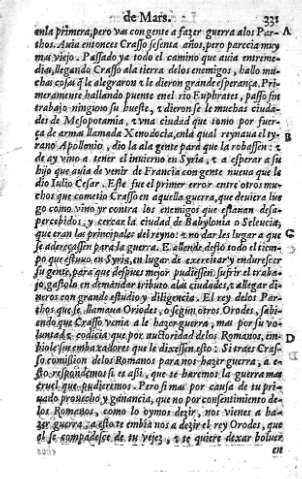 de Mars.
331
enla primera, pero vas con gente a fazer guerra alos Par- A
thos. Auia entonces Crasso sesenta años, pero parecia muy
mas viejo. Passado ya todo el camino que auia entreme-
dia, llegando Crasso ala tierra delos enemigos, hallo mu-
chas cosas que le alegraron e le dieron grande esperança. Pri-
meramente hallando puente enel rio Euphrates, passo sin
trabajo ninguno su hueste, e dieronse le muchas ciuda-
des de Mesopotamia, e vna ciudad que tomo por fuer-
ça de arma llamada Xenodocia, enla qual reynaua el ty-
rano Apollonio, dio la ala gente para que la robassen: e B
de ay vino a tener el inuierno en Syria, e a esperar a su
hijo que auia de venir de Francia con gente nueua que le
dio Iulio Cesar. Este fue el primer error entre otros mu-
chos que cometio Crasso en aquella guerra, que deuiera lue
go como vino yr contra los enemigos que estauan desa-
percebidos, y cercar la ciudad de Babylonia o Seleucia,
que eran las principales del reyno: e no dar les lugar a que C
se adereçassen para la guerra. E allende desto todo el tiem-
po que estuuo en Syria, en lugar de exercitar y endurescer
su gente, para que despues mejor pudiessen sufrir el traba-
jo, gastolo en demandar tributo alas ciudades, e allegar di-
neros con grande estudio y diligencia. El rey delos Par-
thos que se llamaua Oriodes, o segun otros Orodes, sabi-
endo que Crasso venia a le hazer guerra, mas por su vo-
luntad e codicia que por auctoridad delos Romanos, em- D
biole sin embaxadores que le dixessen esto: Si traes Cras-
so comission delos Romanos para nos hazer guerra, a e-
sto respondemos si es assi, que te haremos la guerra mas
cruel que pudieremos. Pero si mas por causa de tu pri-
uado prouecho y ganancia, que no por consentimiento de-
los Romanos, como lo oymos dezir, nos vienes a ha-
zer guerra, a esto te embia nos a dezir el rey Orodes, que
el se compadesce de tu vejez, e te quiere dexar boluer
en